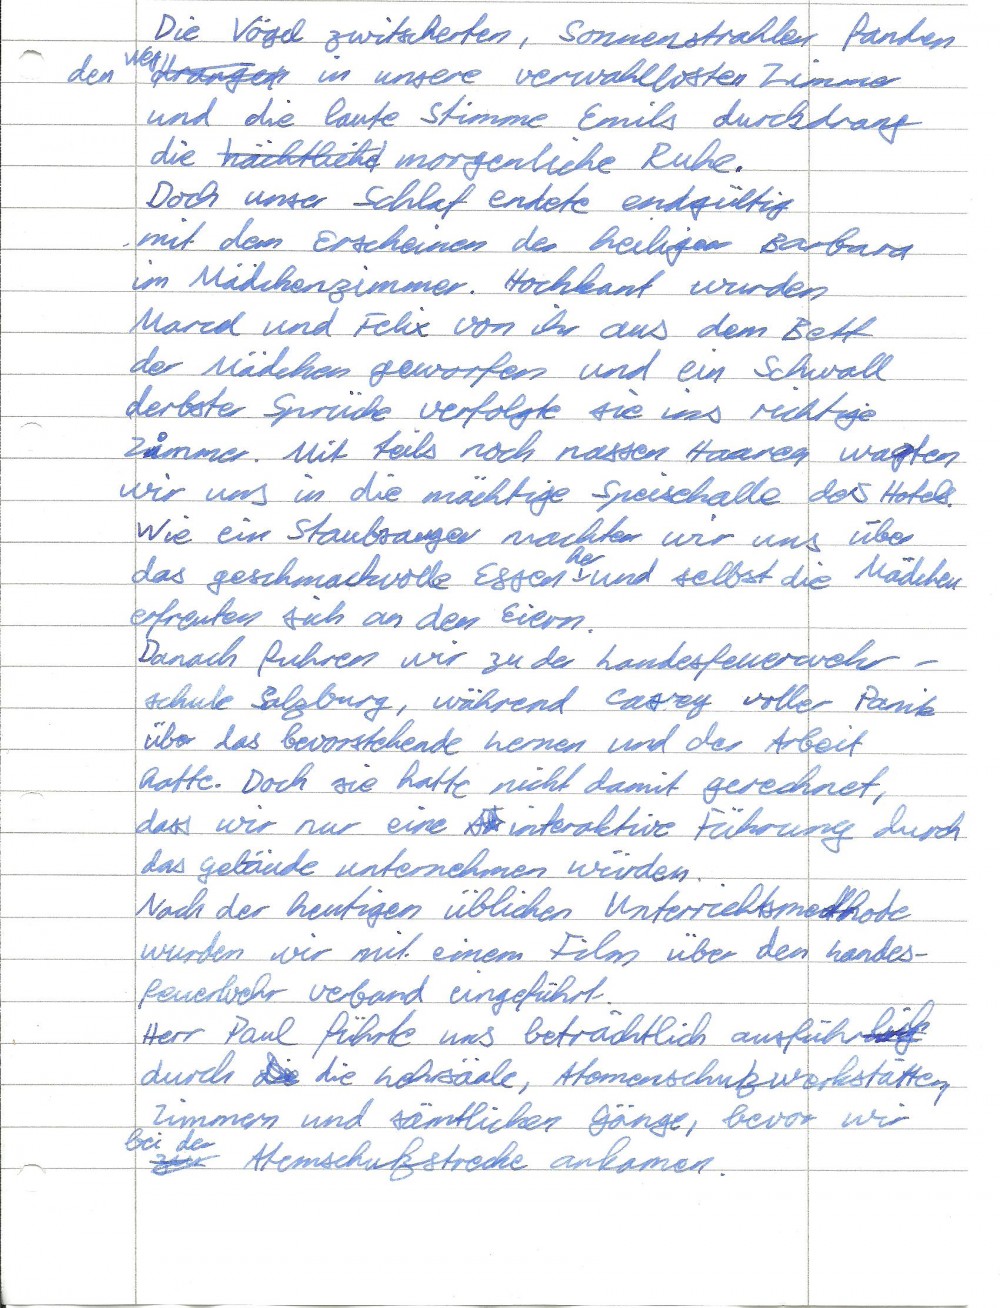 Die Vögel zwitscherten, Sonnenstrahlen fanden
den Weg in unsere verwahllosten Zimmer
und die laute Stimme Emils durchdrang
die morgenliche Ruhe.
Doch unser Schlaf endete endgültig
mit dem Erscheinen der heiligen Barbara
im Mädchenzimmer. Hochkant wurden
Marcel und Felix von ihr aus dem Bett
der Mädchen geworfen und ein Schwall
derbster Sprüche verfolgte sie ins richtige
Zimmer. Mit teils noch nassen Haaren wagten
wir uns in die mächtige Speisehalle des Hotels.
Wie ein Staubsauger machten wir uns über
das geschmackvolle Essen her und selbst die Mädchen
erfreuten sich an den Eiern.
Danach fuhren wir zu der Landesfeuerwehr-
schule Salzburg, während Casrey voller Panik
über das bevorstehende Lernen und der Arbeit
hatte. Doch sie hatte nicht damit gerechnet,
dass wir nur eine interaktive Führung durch
das gebäude unternehmen würden.
Nach der heutigen üblichen Unterrichtsmethode
wurden wir mit einem Film über den Landes-
feuerwehr verband eingeführt.
Herr Paul führte uns beträchtlich ausführlich
durch die Lehrsäale, Atemenschutzwerkstätten,
Zimmern und sämtlichen Gänge, bevor wir
bei der Atemschutzstrecke ankamen.